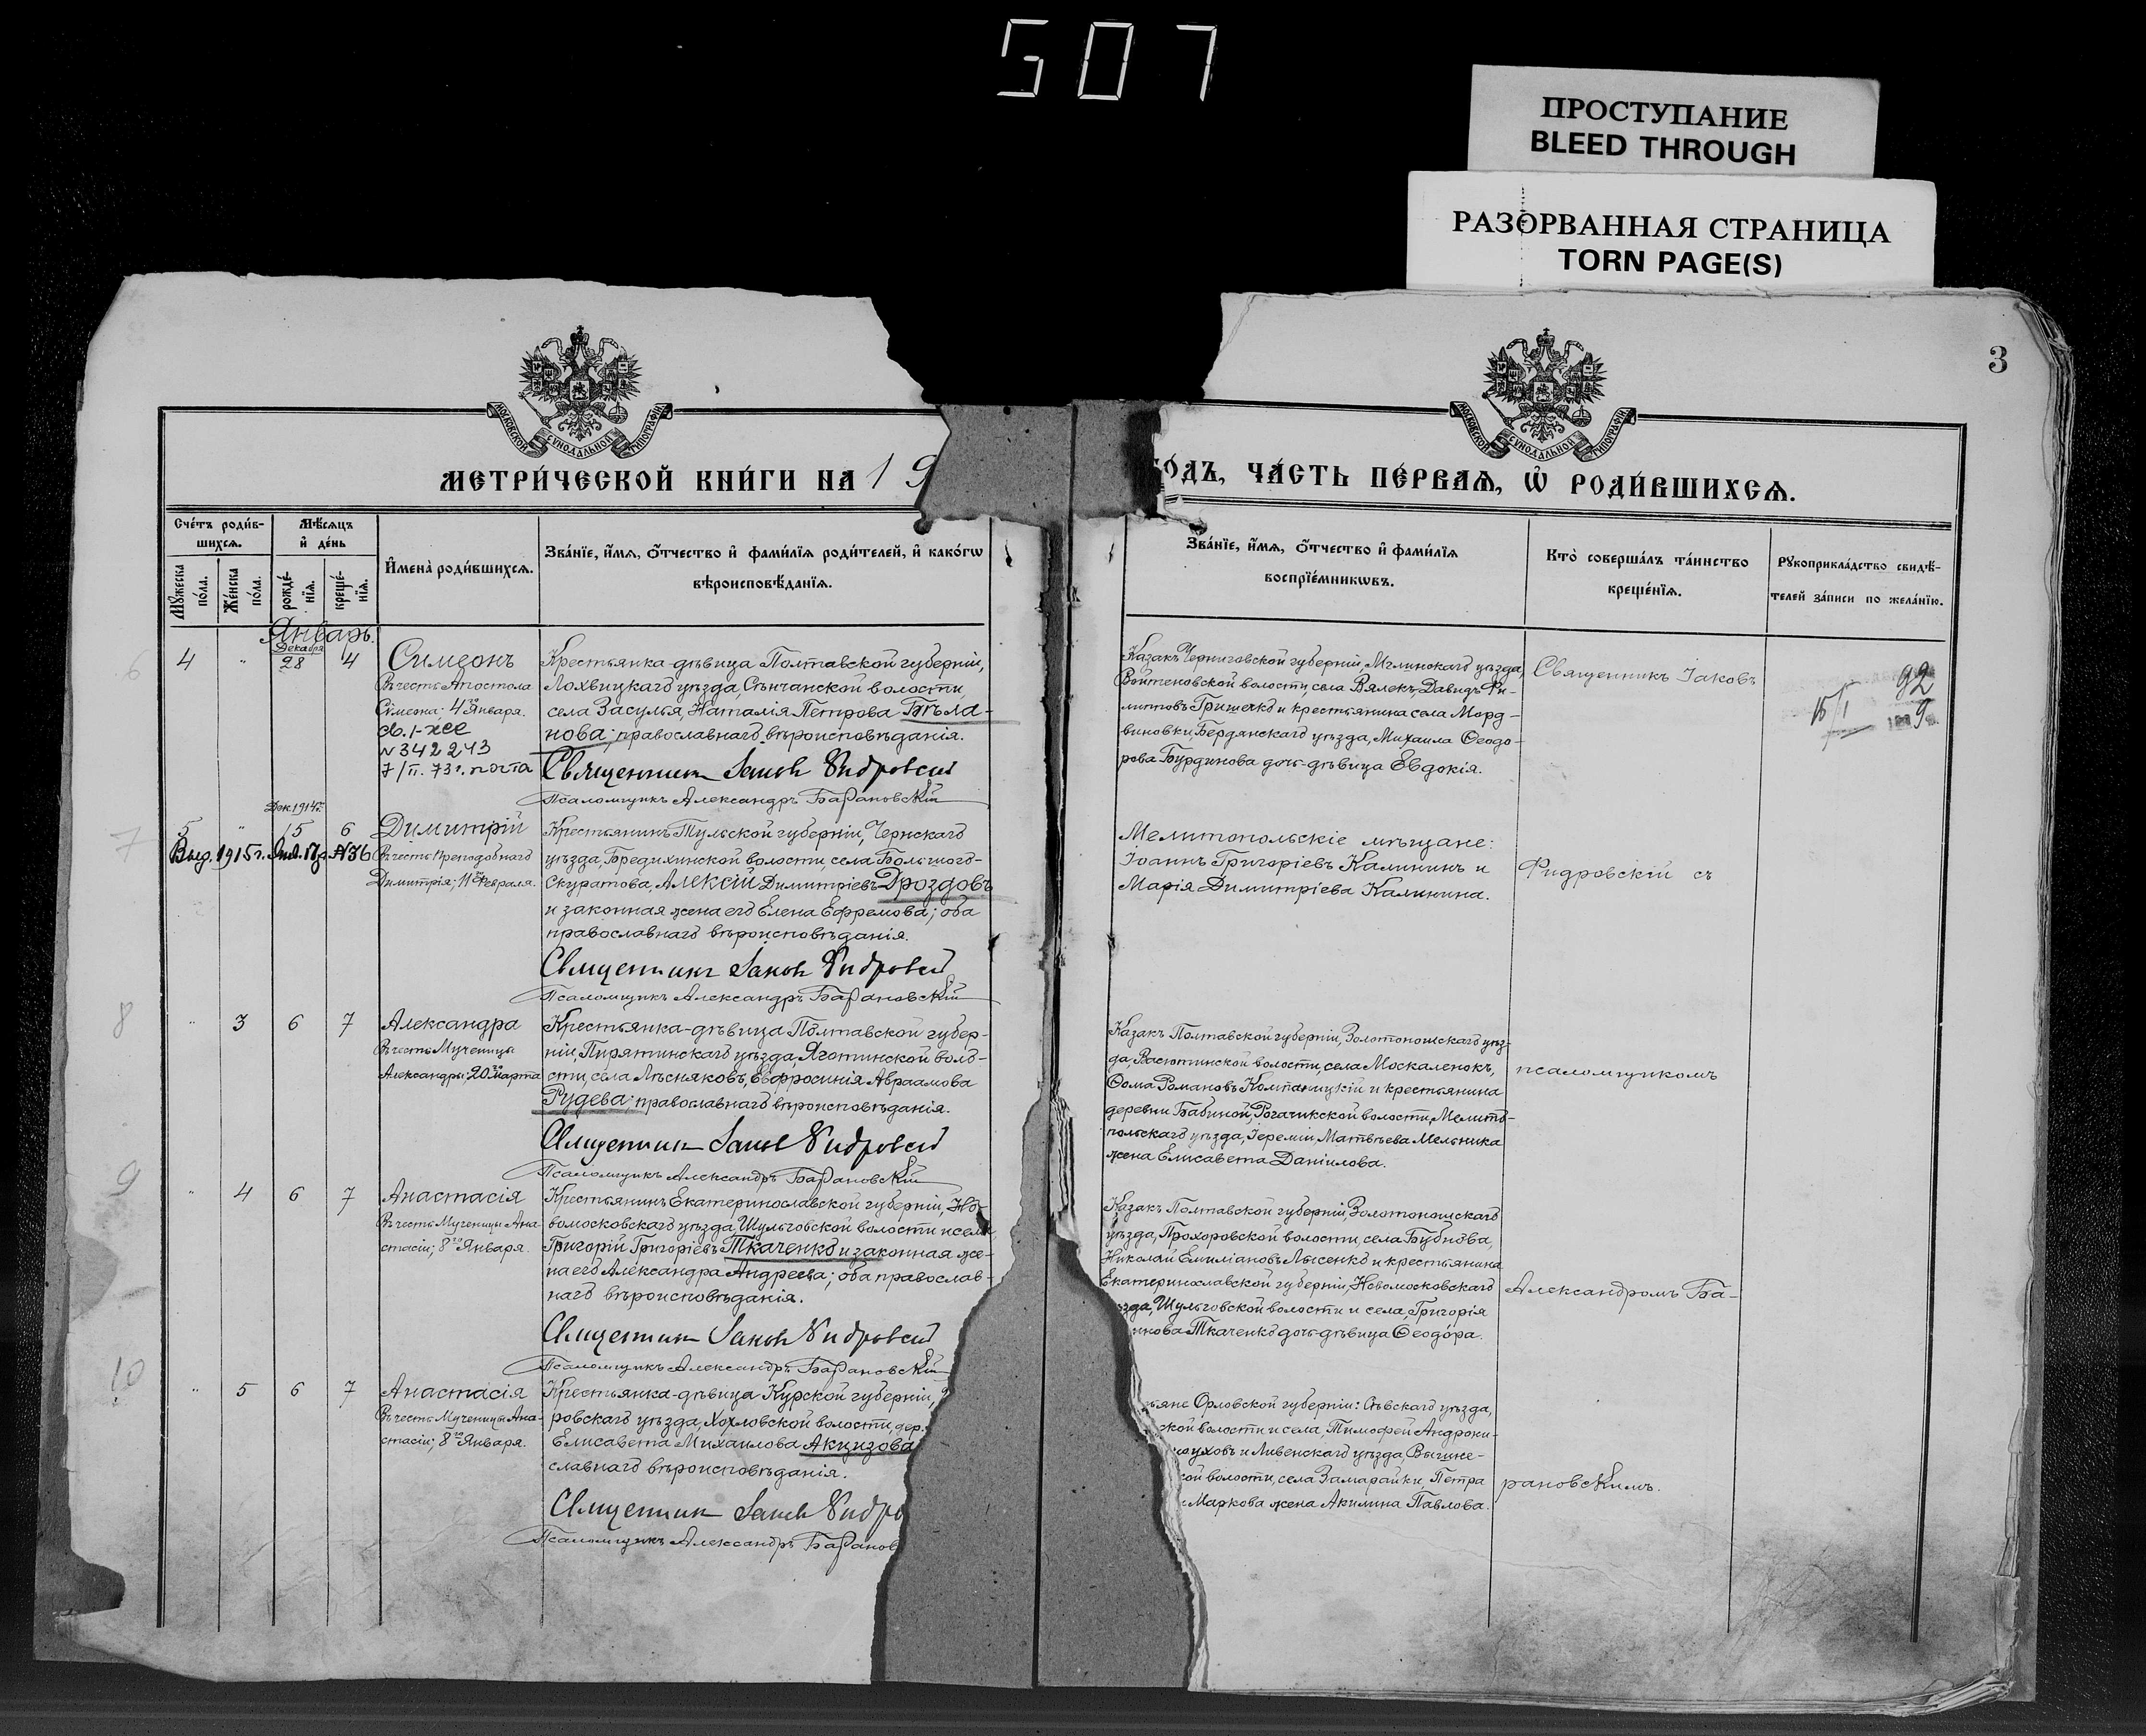 507
ПРОСТУПАНИЕ
BLEED THROUGH
РАЗОРВАННАЯ СТРАНИЦА
TORN PAGE(S)
3
МОСКОВСКОЙ СѴНОДАЛЬНОЙ ТИПОГРАФІИ
МОСКОВСКОЙ СѴНОДАЛЬНОЙ ТИПОГРАФІИ
МЕТРИ́ЧЕСКОЙ КНИ́ГИ НА 19
ГО́ДЪ, ЧА́СТЬ ПЕ́РВАѦ, Ѡ҆ РОДИ́ВШИХСѦ.
Сче́тъ роди́в-
шихсѧ.
Мꙋжеска по́ла.
Же́нска по́ла.
Мѣ́сѧцъ
и҆ де́нь
рожде́-
нїѧ.
креще́-
нїѧ.
И҆мена̀ роди́вшихсѧ.
Зва́нїе, и҆́мѧ, ѻ҆́тчество и҆ фами́лїѧ роди́телей, и҆ како́гѡ
вѣроисповѣ́данїѧ.
Зва́нїе, и҆́мѧ, ѻ҆́тчество и҆ фами́лїѧ
воспрїе́мникѡвъ.
Кто̀ соверша́лъ та́инство
креще́нїѧ.
Рꙋкоприкла́дство свидѣ́-
телей за́писи по жела́нїю.
Январь.
6
4 " Декабря 28 4
Симеонъ
Въ честь Апостола
Симеона: 4го Января.
св. I-ЖС
N 342243
7/II. 73г. почта
Крестьянка-дѣвица Полтавской губерніи,
Лохвицкаго уѣзда, Сѣнчанской волости,
села Засулья, Наталія Петрова Бѣла-
нова; православнаго вѣроисповѣданія.
Священникъ Іаковъ Фидровскій
Псаломщикъ Александръ Барановскій
Казакъ Черниговской губерніи, Мглинскаго уѣзда,
села Вялекъ, Давидъ Фи-
липповъ Гришечко и крестьянина села Морд-
виновки, Бердянскаго уѣзда, Михаила Ѳеодо-
рова Бурдинова дочь-дѣвица Евдокія.
Священникъ Іаковъ
92
15/I 9
7
Дек. 1914г.
5 " 15 6
Выд. 1915г. Янв. 17д. N36
Димитрій
Въ честь Преподобнаго
Димитрія; 11го Февраля.
Крестьянинъ Тульской губерніи, Чернскаго
уѣзда, Бредихинской волости, села Большого-
Скуратова, Алексій Димитріевъ Дроздовъ
и законная жена его Елена Ефремова; оба
православнаго вѣроисповѣданія.
Священникъ Іаковъ Фидровскій
Псаломщикъ Александръ Барановскій
Мелитопольскіе мѣщане:
Іоаннъ Григоріевъ Калининъ и
Марія Димитріева Калинина.
Фидровскій съ
8
" 3 6 7
Александра
Въ честь Мученицы
Александры; 20го Марта
Крестьянка-дѣвица Полтавской губер-
ніи, Пирятинскаго уѣзда, Яготинской воло-
сти, села Лѣсняковъ, Евфросинія Авраамова
Рудева; православнаго вѣроисповѣданія.
Священникъ Іаковъ Фидровскій
Псаломщикъ Александръ Барановскій
Казакъ Полтавской губерніи, Золотоношскаго уѣз-
да, волости, села Москаленокъ,
Ѳома Романовъ Компаницкій и крестьянина
деревни Бабиной, Рогачикской волости, Мелито-
польскаго уѣзда, Іереміи Матвѣева Мельника
жена Елисавета Даніилова.
псаломщикомъ
9
" 4 6 7
Анастасія
Въ честь Мученицы Ана-
стасіи; 8го Января.
Крестьянинъ Екатеринославской губерніи, Но-
вомосковскаго уѣзда, Шульговской волости и села,
Григорій Григоріевъ Ткаченко и законная же-
на его Александра Андреева; оба православ-
наго вѣроисповѣданія.
Священникъ Іаковъ Фидровскій
Псаломщикъ Александръ Барановскій
Казакъ Полтавской губерніи, Золотоношскаго
уѣзда, Прохоровской волости, села Бубнова,
Николай Емиліановъ Лысенко и крестьянина
Екатеринославской губерніи, Новомосковскаго
ѣзда, Шульговской волости и села, Григорія
нова Ткаченко дочь-дѣвица Ѳеодора.
Александромъ Ба-
10
" 5 6 7
Анастасія
Въ честь Мученицы Ана-
стасіи; 8го Января.
Крестьянка-дѣвица Курской губерніи,
ровскаго уѣзда, Хохловской волости, дер.
Елисавета Михаилова Акцизова
славнаго вѣроисповѣданія.
Священникъ Іаковъ Фидро
Псаломщикъ Александръ Баранов
ьяне Орловской губерніи: Сѣвскаго уѣзда,
ской волости и села, Тимофей Андрони-
уховъ и Ливенскаго уѣзда,
ской волости, села Замарайки, Петра
Маркова жена Акилина Павлова.
рановскимъ.